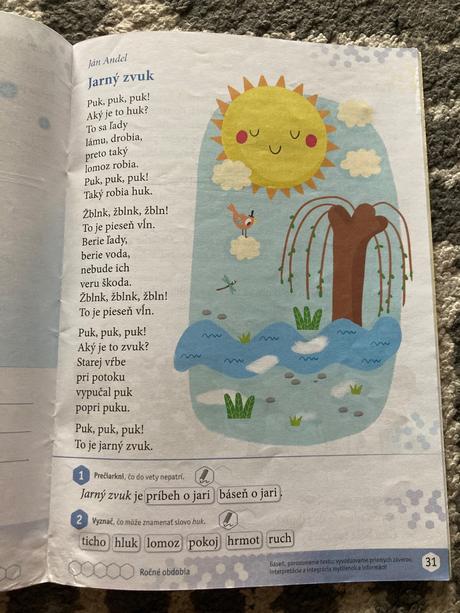 Ján Andel
Jarný zvuk
Puk, puk, puk!
Aký je to huk?
To sa ľady
lámu, drobia,
preto taký
lomoz robia.
Puk, puk, puk!
Taký robia huk.
Žblnk, žblnk, žbln!
To je pieseň vĺn.
Berie ľady,
berie voda,
nebude ich
veru škoda.
Žblnk, žblnk, žbln!
To je pieseň vĺn.
Puk, puk, puk!
Aký je to zvuk?
Starej vŕbe
pri potoku
vypučal puk
popri puku.
Puk, puk, puk!
To je jarný zvuk.
1 Prečiarkni, čo do vety nepatrí.
Jarný zvuk je príbeh o jari báseň o jari.
2 Vyznač, čo môže znamenať slovo huk.
ticho hluk lomoz pokoj hrmot ruch
Ročné obdobia
Báseň, porozumenie textu: vyvodzovanie priamych záverov,
interpretácia a integrácia myšlienok a informácií
31